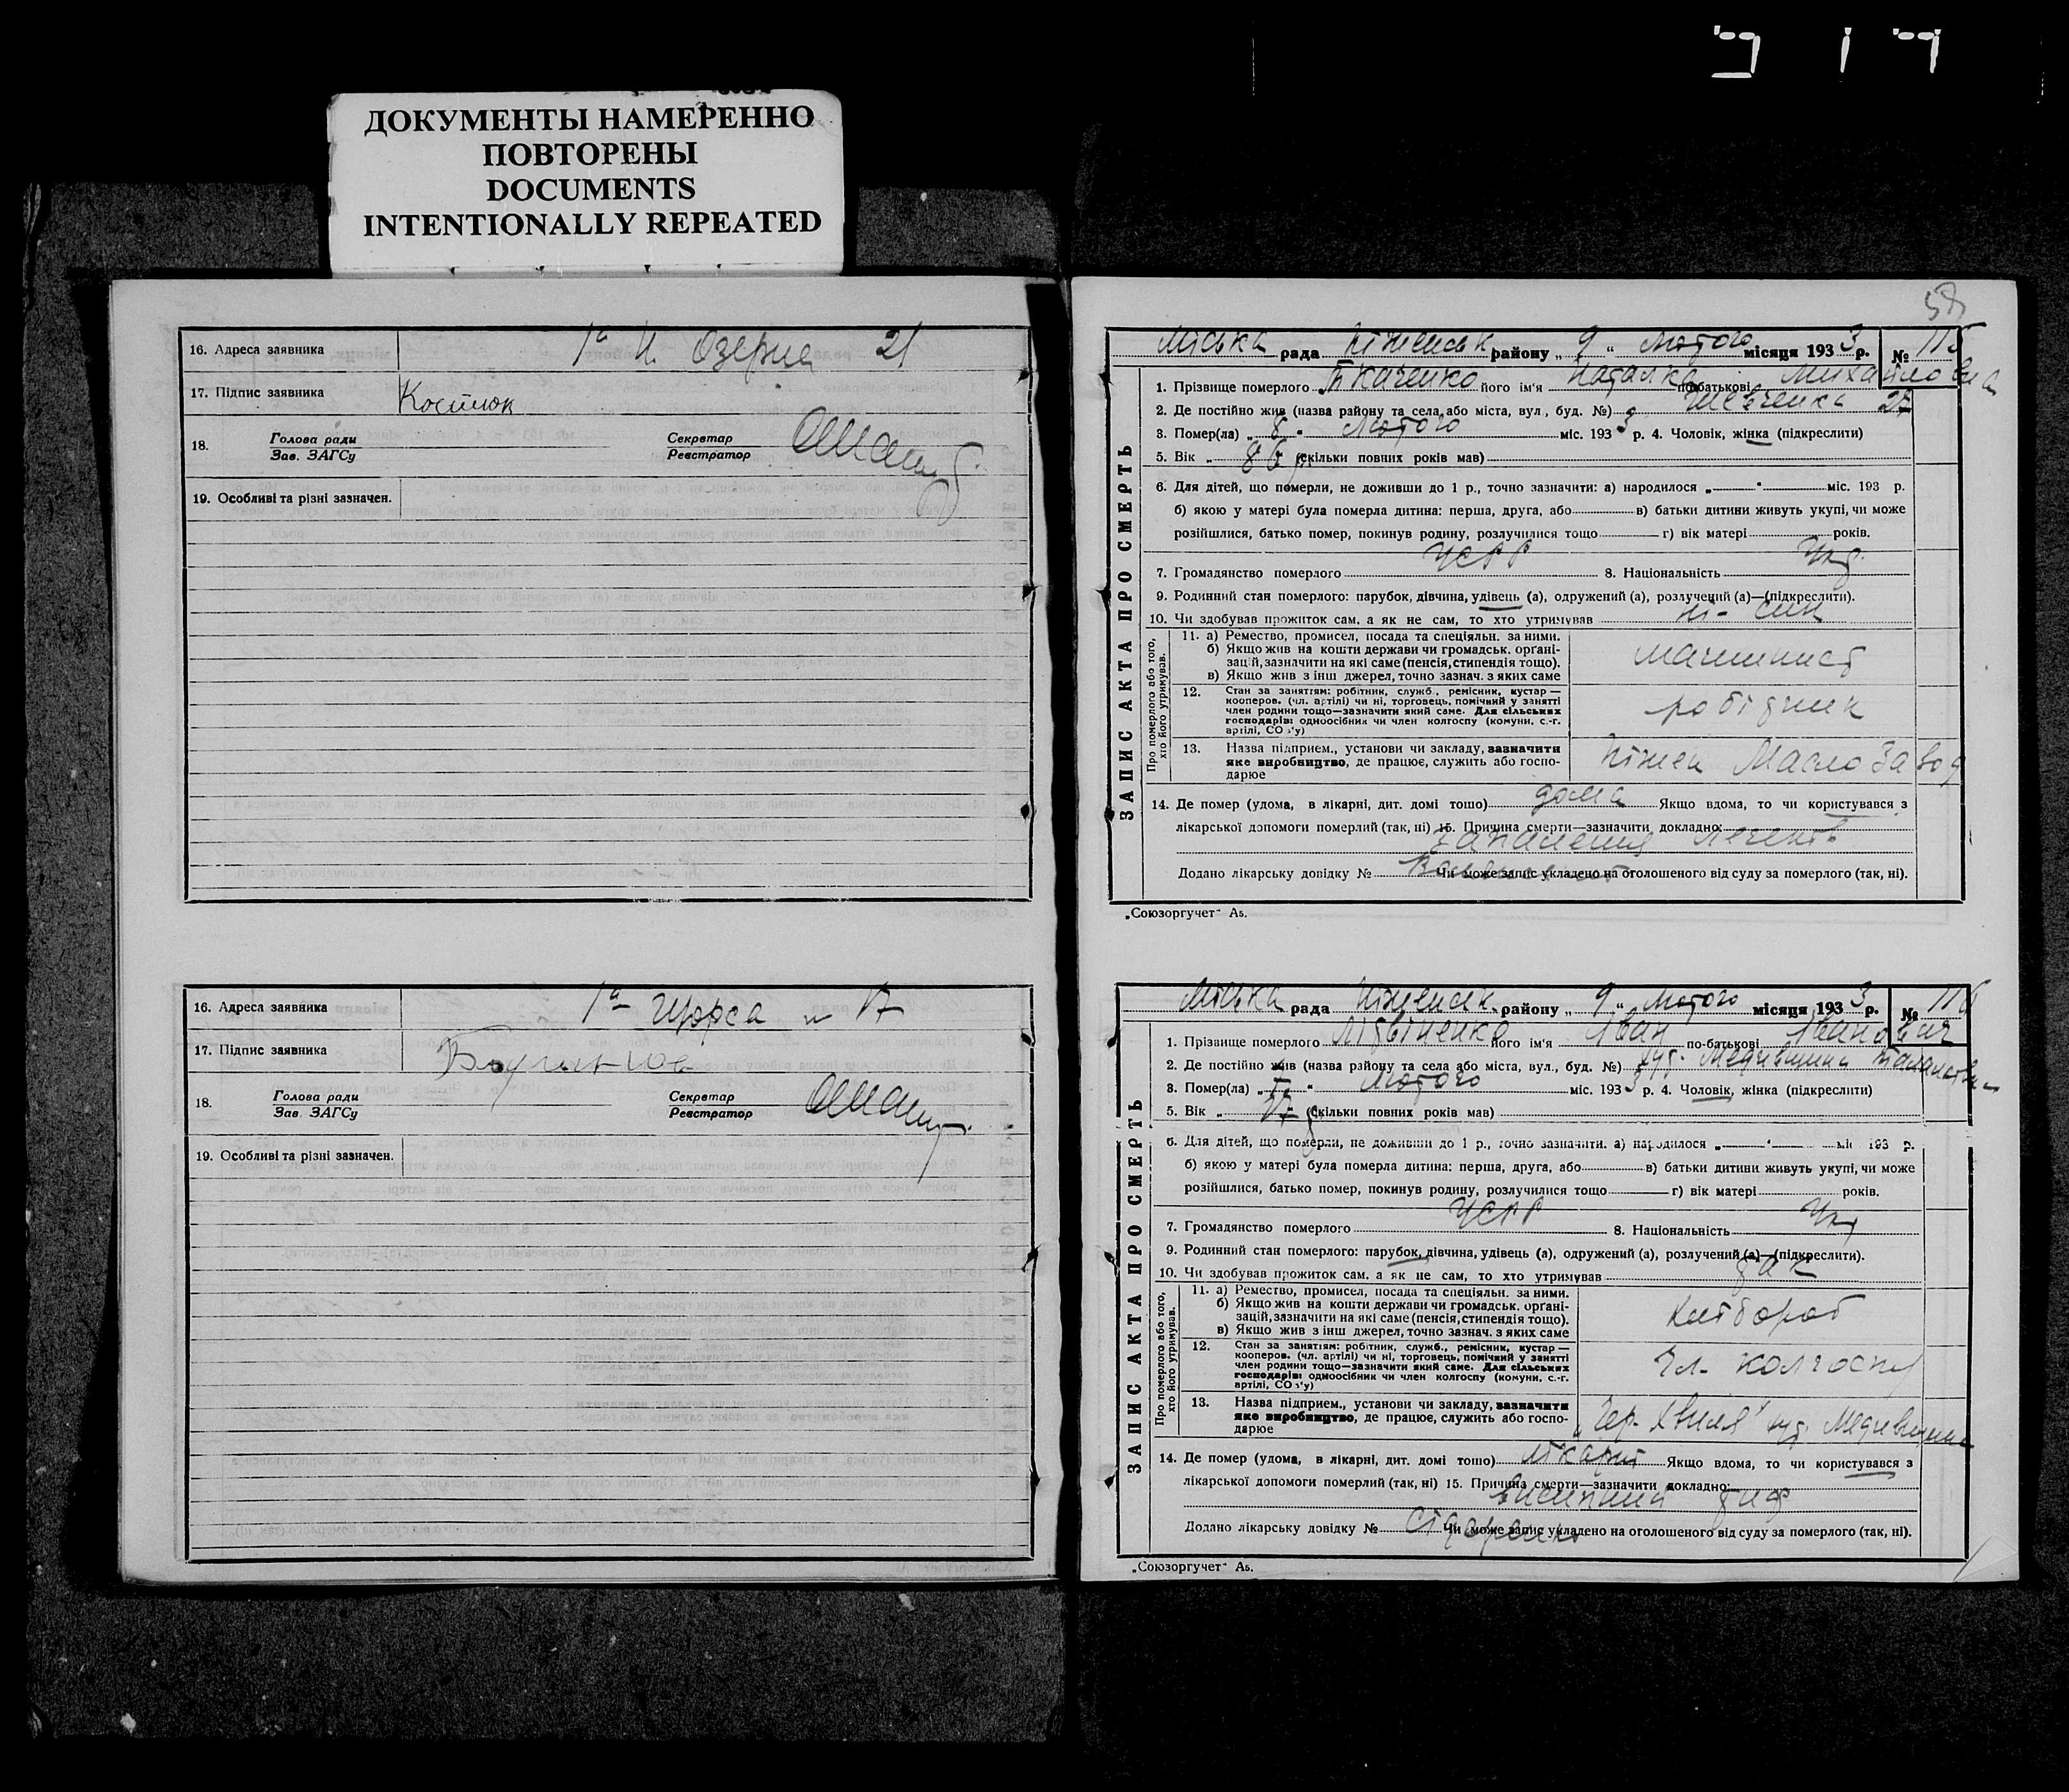 ДОКУМЕНТЫ НАМЕРЕННО
ПОВТОРЕНЫ
DOCUMENTS
INTENTIONALLY REPEATED
16. Адреса заявника 1а Озерна 21
17. Підпис заявника Костюк
18. Голова ради Секретар
Зав. ЗАГСу Реєстратор
19. Особливі та різні зазначен.
16. Адреса заявника 1а Щорса 17
17. Підпис заявника
18. Голова ради Секретар
Зав. ЗАГСу Реєстратор
19. Особливі та різні зазначен.
ЗАПИС АКТА ПРО СМЕРТЬ
Міська рада Ніженськ району „ 9 “ Лютого місяця 193 3 р. № 115
1. Прізвище померлого Ткаченко його ім'я Наталка по-батькові Михайловна
2. Де постійно жив (назва району та села, або міста, вул., буд. №) Шевченка 27
3. Помер(ла) „ 8 “ Лютого міс. 193 3 р. 4. Чоловік, жінка (підкреслити)
5. Вік „ 86 р. (скільки повних років мав)
6. Для дітей, що померли, не доживши до 1 р., точно зазначити: а) народилося „ “ міс. 193 р.
б) якою у матері була померла дитина: перша, друга, або в) батьки дитини живуть укупі, чи може
розійшлися, батько помер, покинув родину, розлучилися тощо г) вік матері років.
7. Громадянство померлого УСРР 8. Національність Укр.
9. Родинний стан померлого: парубок, дівчина, удівець (а), одружений (а), розлучений (а)—(підкреслити).
10. Чи здобував прожиток сам, а як не сам, то хто утримував ні - син
Про померлого або того, хто його утримував.
11. а) Ремество, промисел, посада та спеціяльн. за ними.
б) Якщо жив на кошти держави чи громадськ. орґані-
зацій, зазначити на які саме (пенсія, стипендія тощо).
в) Якщо жив з інш джерел, точно зазнач. з яких саме
машинист
12. Стан за заняттям: робітник, служб., ремісник, кустар —
кооперов. (чл. артілі) чи ні, торговець, помічний у занятті
член родини тощо—зазначити який саме. Для сільських
господарів: одноосібник чи член колгоспу (комуни, с.-г.
артілі, СОЗ'у)
робітник
13. Назва підприєм., установи чи закладу, зазначити
яке виробництво, де працює, служить або госпо-
дарює
Ніжен МаслоЗавод
14. Де помер (удома, в лікарні, дит. домі тощо) дома Якщо вдома, то чи користувався з
лікарської допомоги померлий (так, ні) 15. Причина смерти—зазначити докладно:
Запалення легенів
Додано лікарську довідку № Чи може запис укладено на оголошеного від суду за померлого (так, ні).
„Союзоргучет“ А5.
ЗАПИС АКТА ПРО СМЕРТЬ
Міська рада Ніженськ району „ 9 “ Лютого місяця 193 3 р. № 116
1. Прізвище померлого Літвіненко його ім'я Іван по-батькові Іванович
2. Де постійно жив (назва району та села або міста, вул., буд. №) хут.
3. Помер(ла) „ “ Лютого міс. 193 3 р. 4. Чоловік, жінка (підкреслити)
5. Вік „ 17 р. (скільки повних років мав)
6. Для дітей, що померли, не доживши до 1 р., точно зазначити. а) народилося „ “ міс 193 р.
б) якою у матері була померла дитина: перша, друга, або в) батьки дитини живуть укупі, чи може
розійшлися, батько помер, покинув родину, розлучилися тощо г) вік матері років.
7. Громадянство померлого УСРР 8. Національність Укр
9. Родинний стан померлого: парубок, дівчина, удівець (а), одружений (а), розлучений (а)—(підкреслити).
10. Чи здобував прожиток сам, а як не сам, то хто утримував так
Про померлого або того, хто його утримував.
11. а) Ремество, промисел, посада та спеціяльн. за ними.
б) Якщо жив на кошти держави чи громадськ. орґані-
зацій, зазначити на які саме (пенсія, стипендія тощо).
в) Якщо жив з інш джерел, точно зазнач. з яких саме
хлібороб
12. Стан за заняттям: робітник, служб., ремісник, кустар —
кооперов. (чл. артілі) чи ні, торговець, помічний у занятті
член родини тощо—зазначити який саме. Для сільських
господарів: одноосібник чи член колгоспу (комуни, с.-г.
артілі, СОЗ'у)
Чл. колгоспу
13. Назва підприєм., установи чи закладу, зазначити
яке виробництво, де працює, служить або госпо-
дарює
„Чер. Хвиля" хут.
14. Де помер (удома, в лікарні, дит. домі тощо) лікарні Якщо вдома, то чи користувався з
лікарської допомоги померлий (так, ні) 15. Причина смерти—зазначити докладно:
висипний тиф
Додано лікарську довідку № Сідоренко Чи може запис укладено на оголошеного від суду за померлого (так, ні).
„Союзоргучет“ А5.